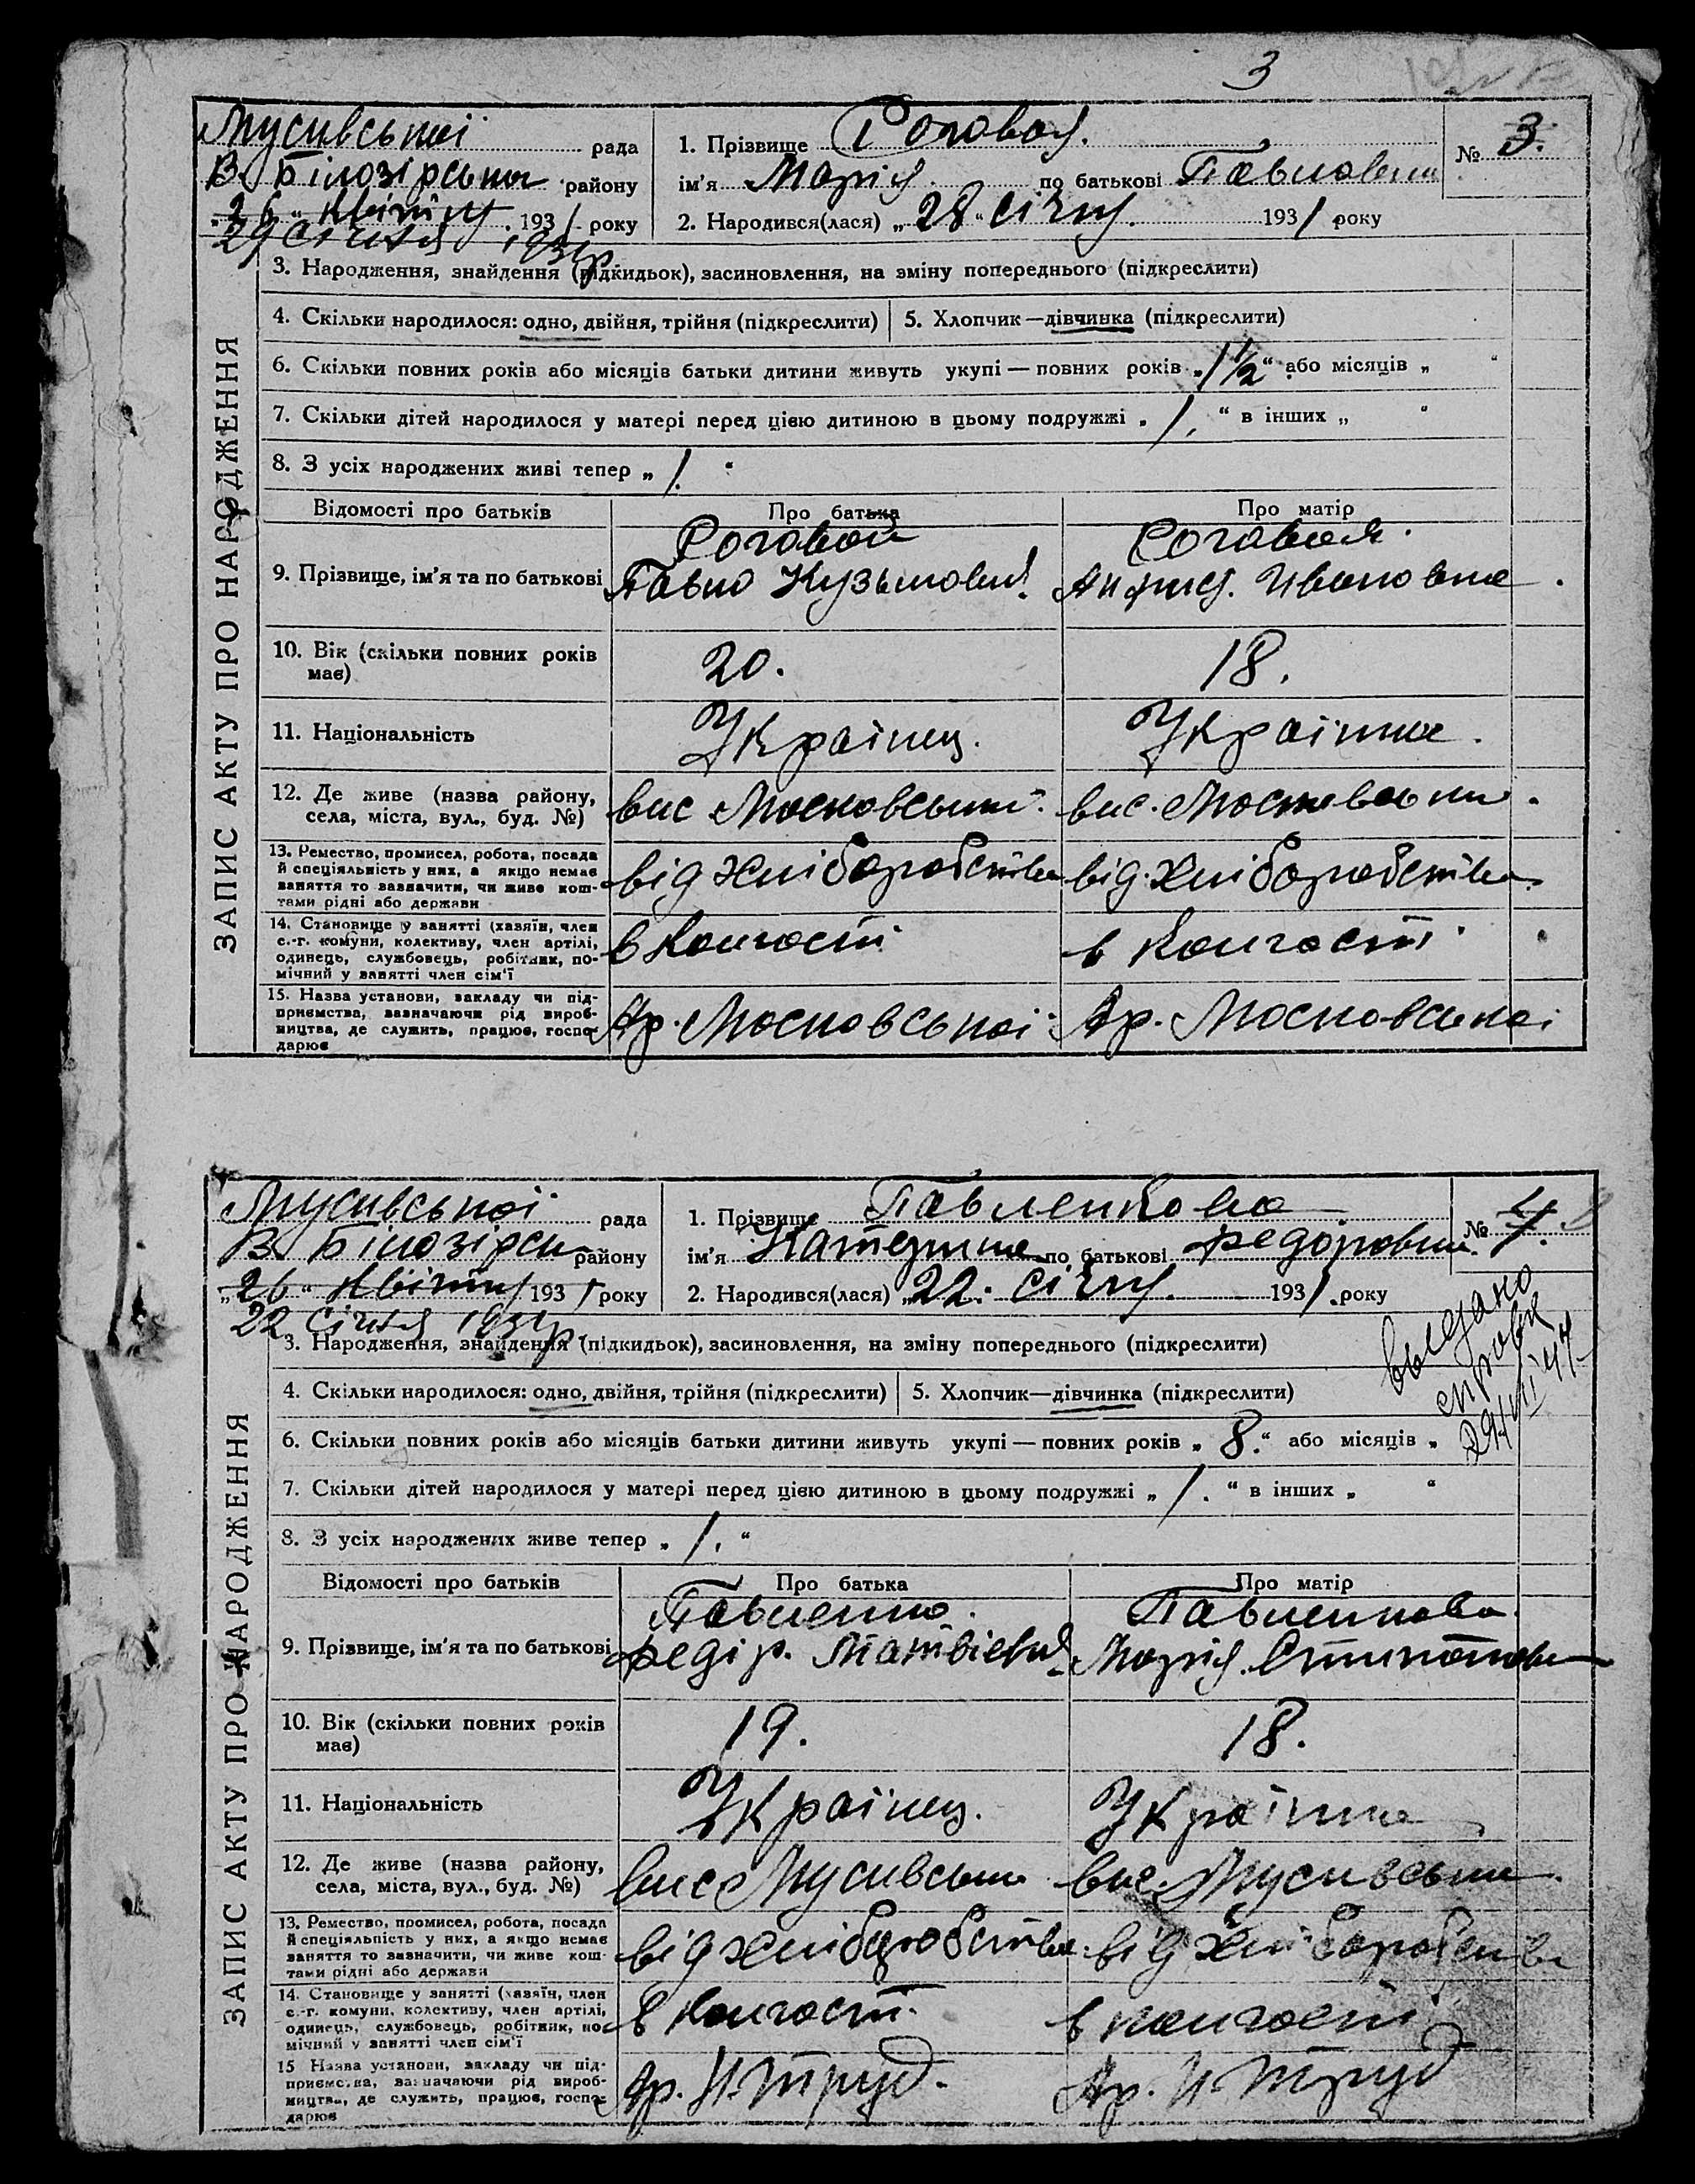 3
Мусиївської рада
В. Білозірська району
„26“ Квітня 1931 року
29 Січня 1931р
1. Прізвище Роговая.
ім'я Марія по батькові Павловна
№ 3.
2. Народився(лася) „28“ січня 1931 року
ЗАПИС АКТУ ПРО НАРОДЖЕННЯ
3. Народження, знайдення (підкидьок), засиновлення, на зміну попереднього (підкреслити)
4. Скільки народилося: одно, двійня, трійня (підкреслити) 5. Хлопчик—дівчинка (підкреслити)
6. Скільки повних років або місяців батьки дитини живуть укупі — повних років „1½“ або місяців „ “
7. Скільки дітей народилося у матері перед цією дитиною в цьому подружжі „1.“ в інших „ “
8. З усіх народжених живі тепер „1.“
Відомості про батьків Про батька Про матір
Роговой Роговая.
9. Прізвище, ім'я та по батькові Павло Кузьмович. Ивановна
10. Вік (скільки повних років має) 20. 18.
11. Національність Українец. Українка.
12. Де живе (назва району, села, міста, вул., буд. №) вис Московський. вис. Московський.
13. Ремество, промисел, робота, посада й спеціяльність у них, а якщо немає заняття то зазначити, чи живе коштами рідні або держави від хліборобства від хліборобства
14. Становище у занятті (хазяїн, член с.-г. комуни, колективу, член артілі, одинець, службовець, робітник, помічний у занятті член сім'ї в колгоспі в колгоспі
15. Назва установи, закладу чи підприємства, зазначаючи рід виробництва, де служить, працює, господарює Ар. Московської Ар. Московської
Мусиївської рада
В. Білозірськ району
„26“ Квітня 1931 року
22 Січня 1931р
1. Прізвище Павленкова
ім'я Катерина по батькові Федоровна
№ 4.
2. Народився(лася) „22. січня. 1931. року
видано
справк
29/VII 44
ЗАПИС АКТУ ПРО НАРОДЖЕННЯ
3. Народження, знайдення (підкидьок), засиновлення, на зміну попереднього (підкреслити)
4. Скільки народилося: одно, двійня, трійня (підкреслити) 5. Хлопчик—дівчинка (підкреслити)
6. Скільки повних років або місяців батьки дитини живуть укупі — повних років „8.“ або місяців „
7. Скільки дітей народилося у матері перед цією дитиною в цьому подружжі „1.“ в інших „ “
8. З усіх народжених живе тепер „1.“
Відомості про батьків Про батька Про матір
Павленко. Павленкова
9. Прізвище, ім'я та по батькові Федір. Матвієвич Марія
10. Вік (скільки повних років має) 19. 18.
11. Національність Українец. Українка
12. Де живе (назва району, села, міста, вул., буд. №) вис Мусиївський вис. Мусиївський.
13. Ремество, промисел, робота, посада й спеціяльність у них, а якщо немає заняття то зазначити, чи живе коштами рідні або держави від хліборобства від хліборобства
14. Становище у занятті (хазяїн, член с.-г. комуни, колективу, член артілі, одинець, службовець, робітник, помічний у занятті член сім'ї в колгоспі. в колгоспі
15 Назва установи, закладу чи підприємства, зазначаючи рід виробництва, де служить, працює, господарює Ар. Н. Труд. Ар. Н. Труд